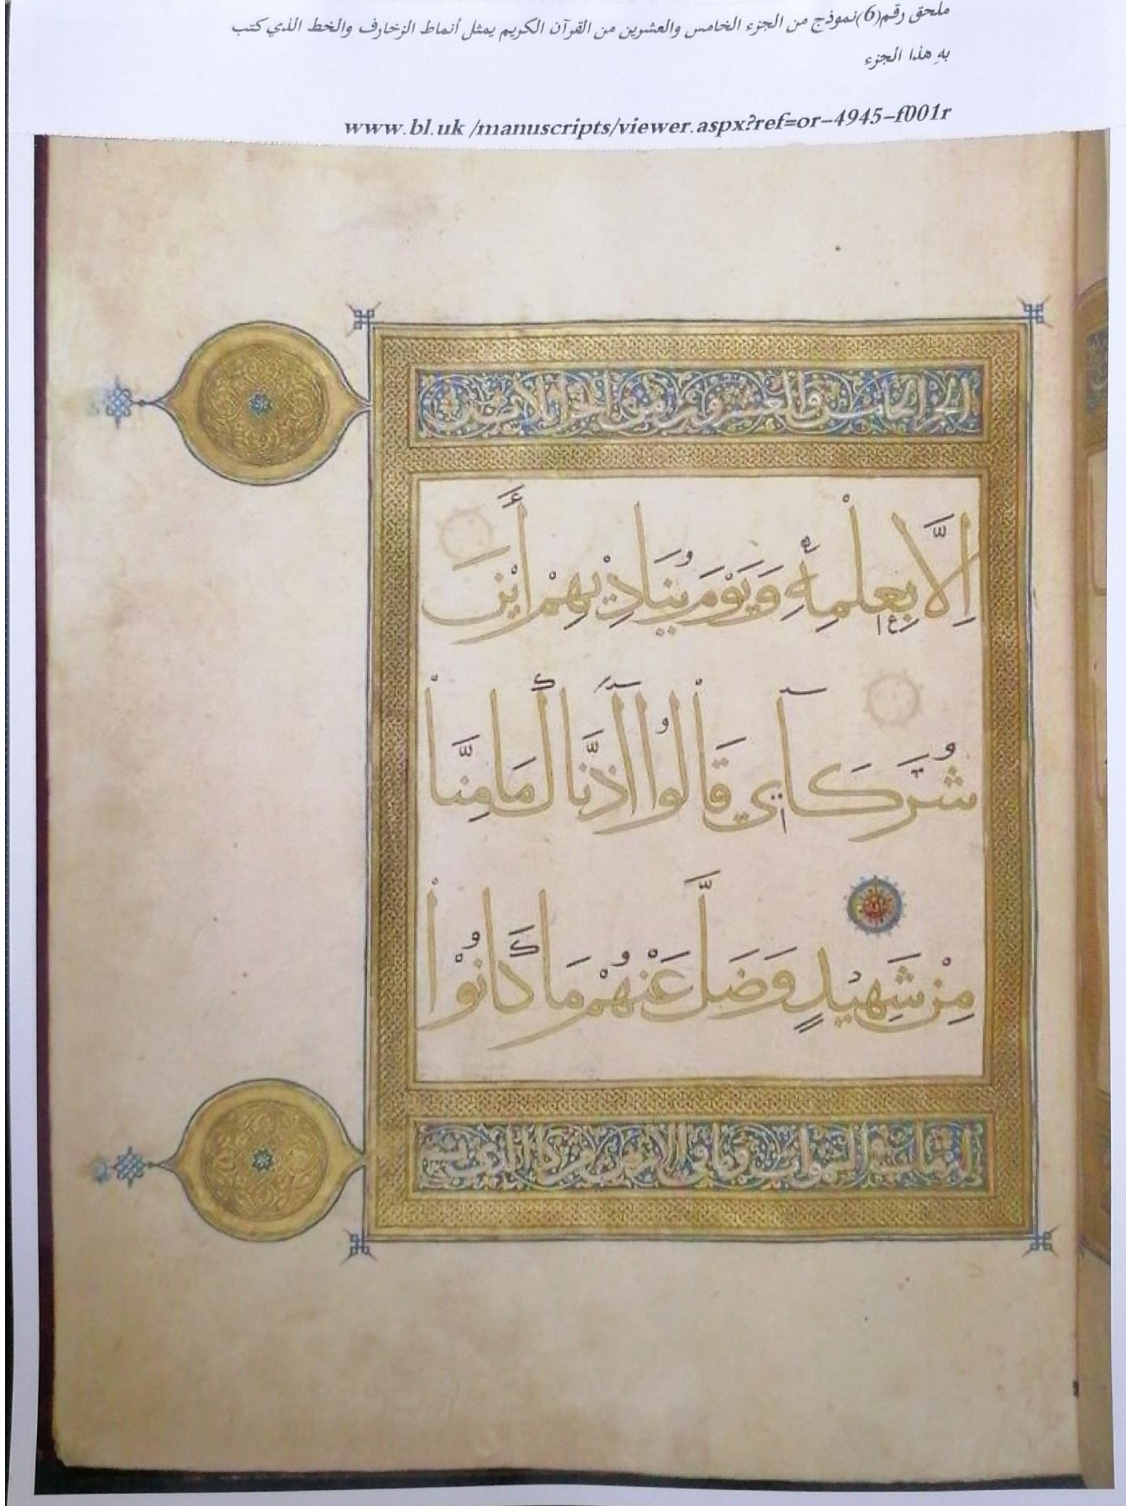 ملحق رقم(6)نموذج من الجزء الخامس والعشرين من القرآن الكريم يمثل أنماط الزخارف والخط الذي كتب
بهِ هذا الجزء
www.bl.uk /manuscripts/viewer.aspx?ref=or-4945-f001r
الجزء الخامس والعشرون من
إِلَّا بِعِلْمِهِ وَيَوْمَ يُنَادِيهِمْ أَيْنَ
شُرَكَآيِ قَالُوا آذَنَّاكَ مَا مِنَّا
مِنْ شَهِيدٍ وَضَلَّ عَنْهُمْ مَا كَانُوا